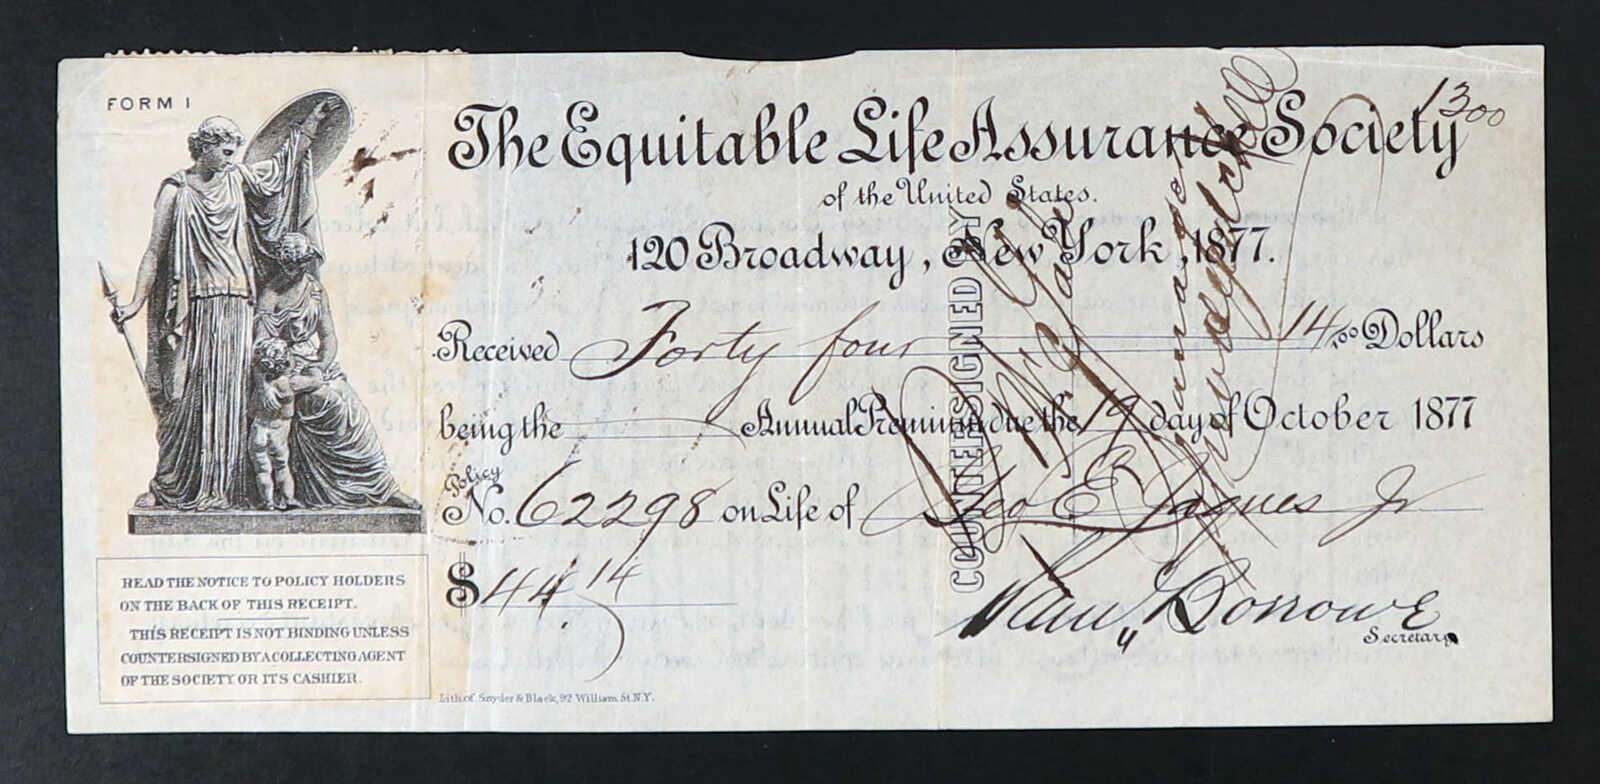 FORM 1
1300
The Equitable Life Assurance Society
of the United States.
120 Broadway, New York, 1877.
Received Forty four 14/00 Dollars
being the Annual Premium due the 19 day of October 1877
Policy
No. 62298 on Life of Geo E Jaques Jr
$44 14
COUNTERSIGNED BY
Manager
Saml Borrowe
Secretary
READ THE NOTICE TO POLICY HOLDERS
ON THE BACK OF THIS RECEIPT.
THIS RECEIPT IS NOT BINDING UNLESS
COUNTERSIGNED BY A COLLECTING AGENT
OF THE SOCIETY OR ITS CASHIER.
Lith. of Snyder & Black, 92 William St. N.Y.